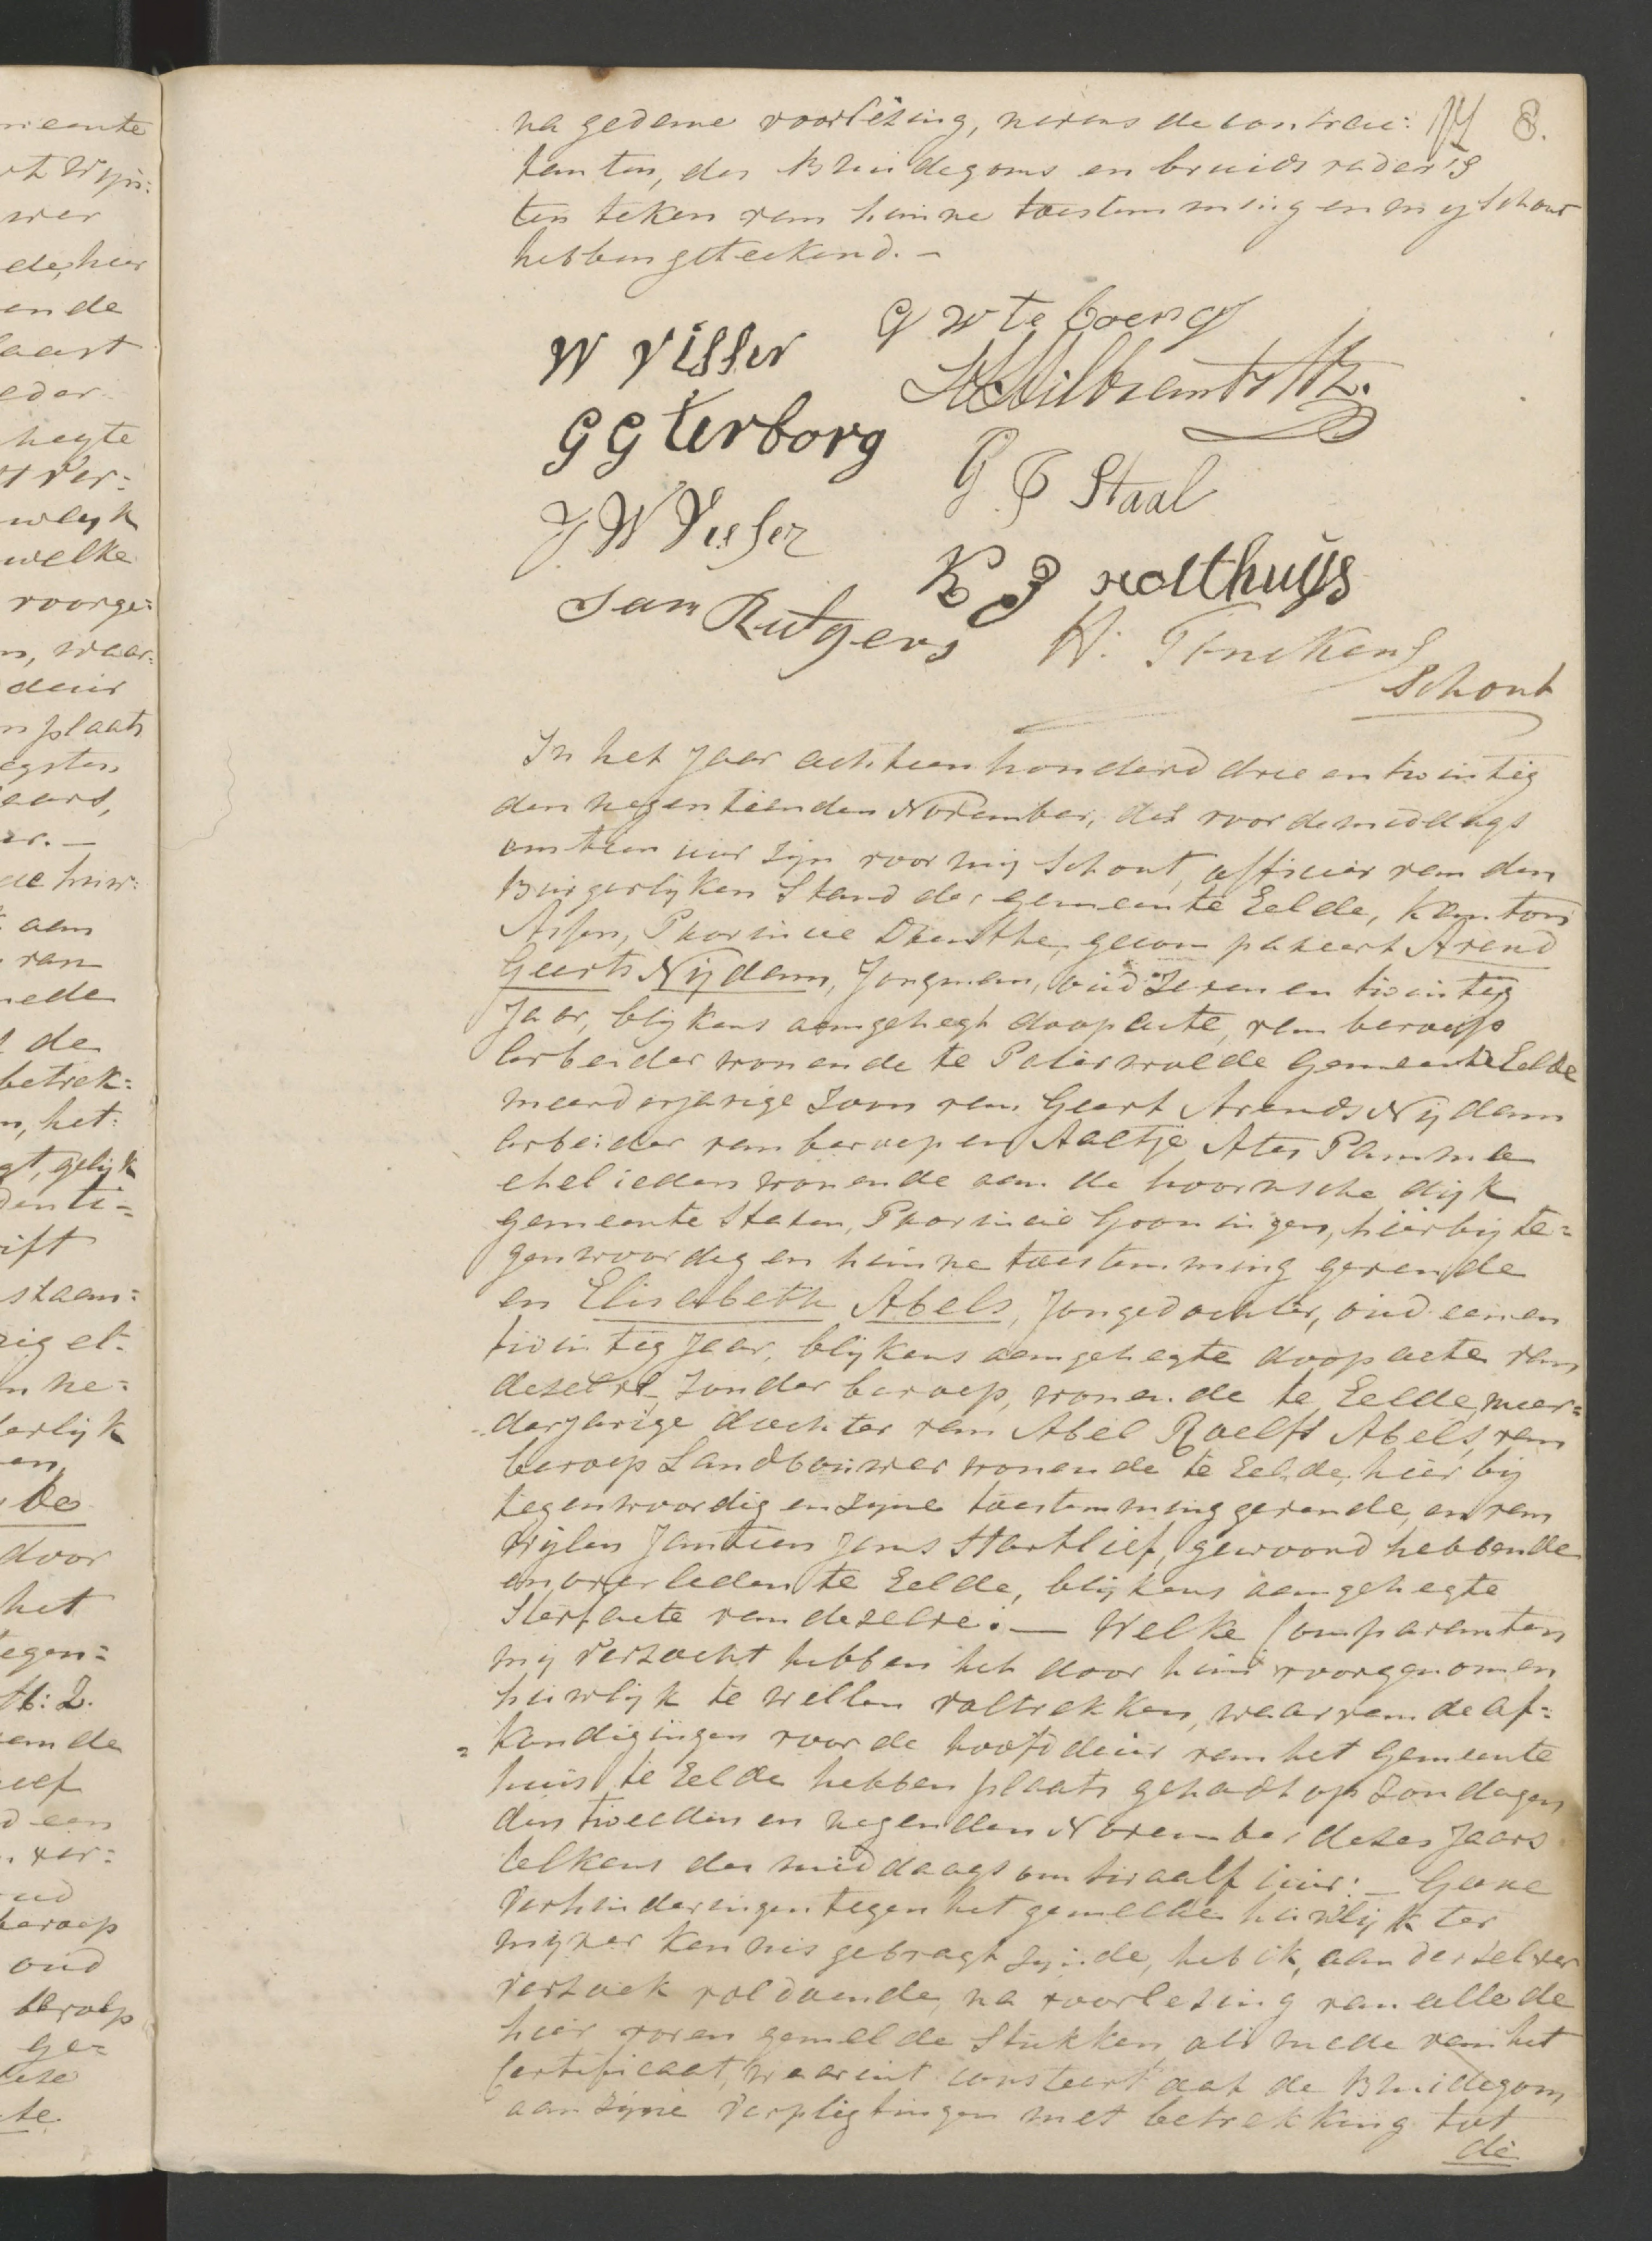 na gedane voorlezing, nevens de contrac: 14 8.
tanten, des Bruidegoms en bruids vader's
ten teken van hunne toestemming en my Schout
hebben geteekend. –
W Visser
G W te boerg
G G terborg
H Wilbrants Hz.
J. W Visser
G. J Staal
Jan Rutgers
K J nolthuijs
H: Tonckens
Schout
In het Jaar achtien honderd drie en twintig
den negentienden November, des voordemiddags
om tien uur zyn voor mij Schout, officier van den
Burgerlyken Stand der gemeente Eelde, Kantons
Assen, Provincie Drenthe, gecompareert Arend
Geerts Nijdam, Jongman, oud Zeven en twintig
Jaar, blijkens aangehegt doopacte, van beroep
arbeider wonende te Paterwolde Gemeente Eelde
meerderjarige Zoon van Geert Arends Nijdam
arbeider van beroep en Aaltje Ates Pamma
ehelieden wonende aan de hoornsche dijk
gemeente Haren, Provincie Groningen, hierbij te=
genwoordig en hunne toestemming gevende
en Elisabeth Abels, Jongedochter, oud een en
twintig Jaar, blykens aangehegte doopacte van
dezelve, zonder beroep, wonende te Eelde, meer=
derjarige dochter van Abel Roelfs Abels, van
beroep Landbouwer wonende te Eelde, hier bij
tegenwoordig en zyne toestemming gevende, en van
wijlen Jantien Jans Hartlief, gewoond hebbende
en overleden te Eelde, blijkens aangehegte
Sterfacte van dezelve: — Welke Comparanten
mij verzocht hebben het door hun voorgenomen
huwlijk te willen voltrekken, waarvan de af=
= kondigingen voor de hoofd deur van het Gemeente
huis te Eelde hebben plaats gehadt op Zondagen
den tweeden en negenden November dezes Jaars
telkens des middaags om twaalf uur: – Geene
verhinderingen tegen het gemelde huwlijk ter
mijner kennis gebragt zynde, heb ik, aan derzelver
verzoek voldoende, na voorlezing van alle de
hier voren gemelde Stukken, als mede van het
Certificaat, waaruit consteert dat de Bruidegom,
aan zyne verpligtingen met betrekking tot
de